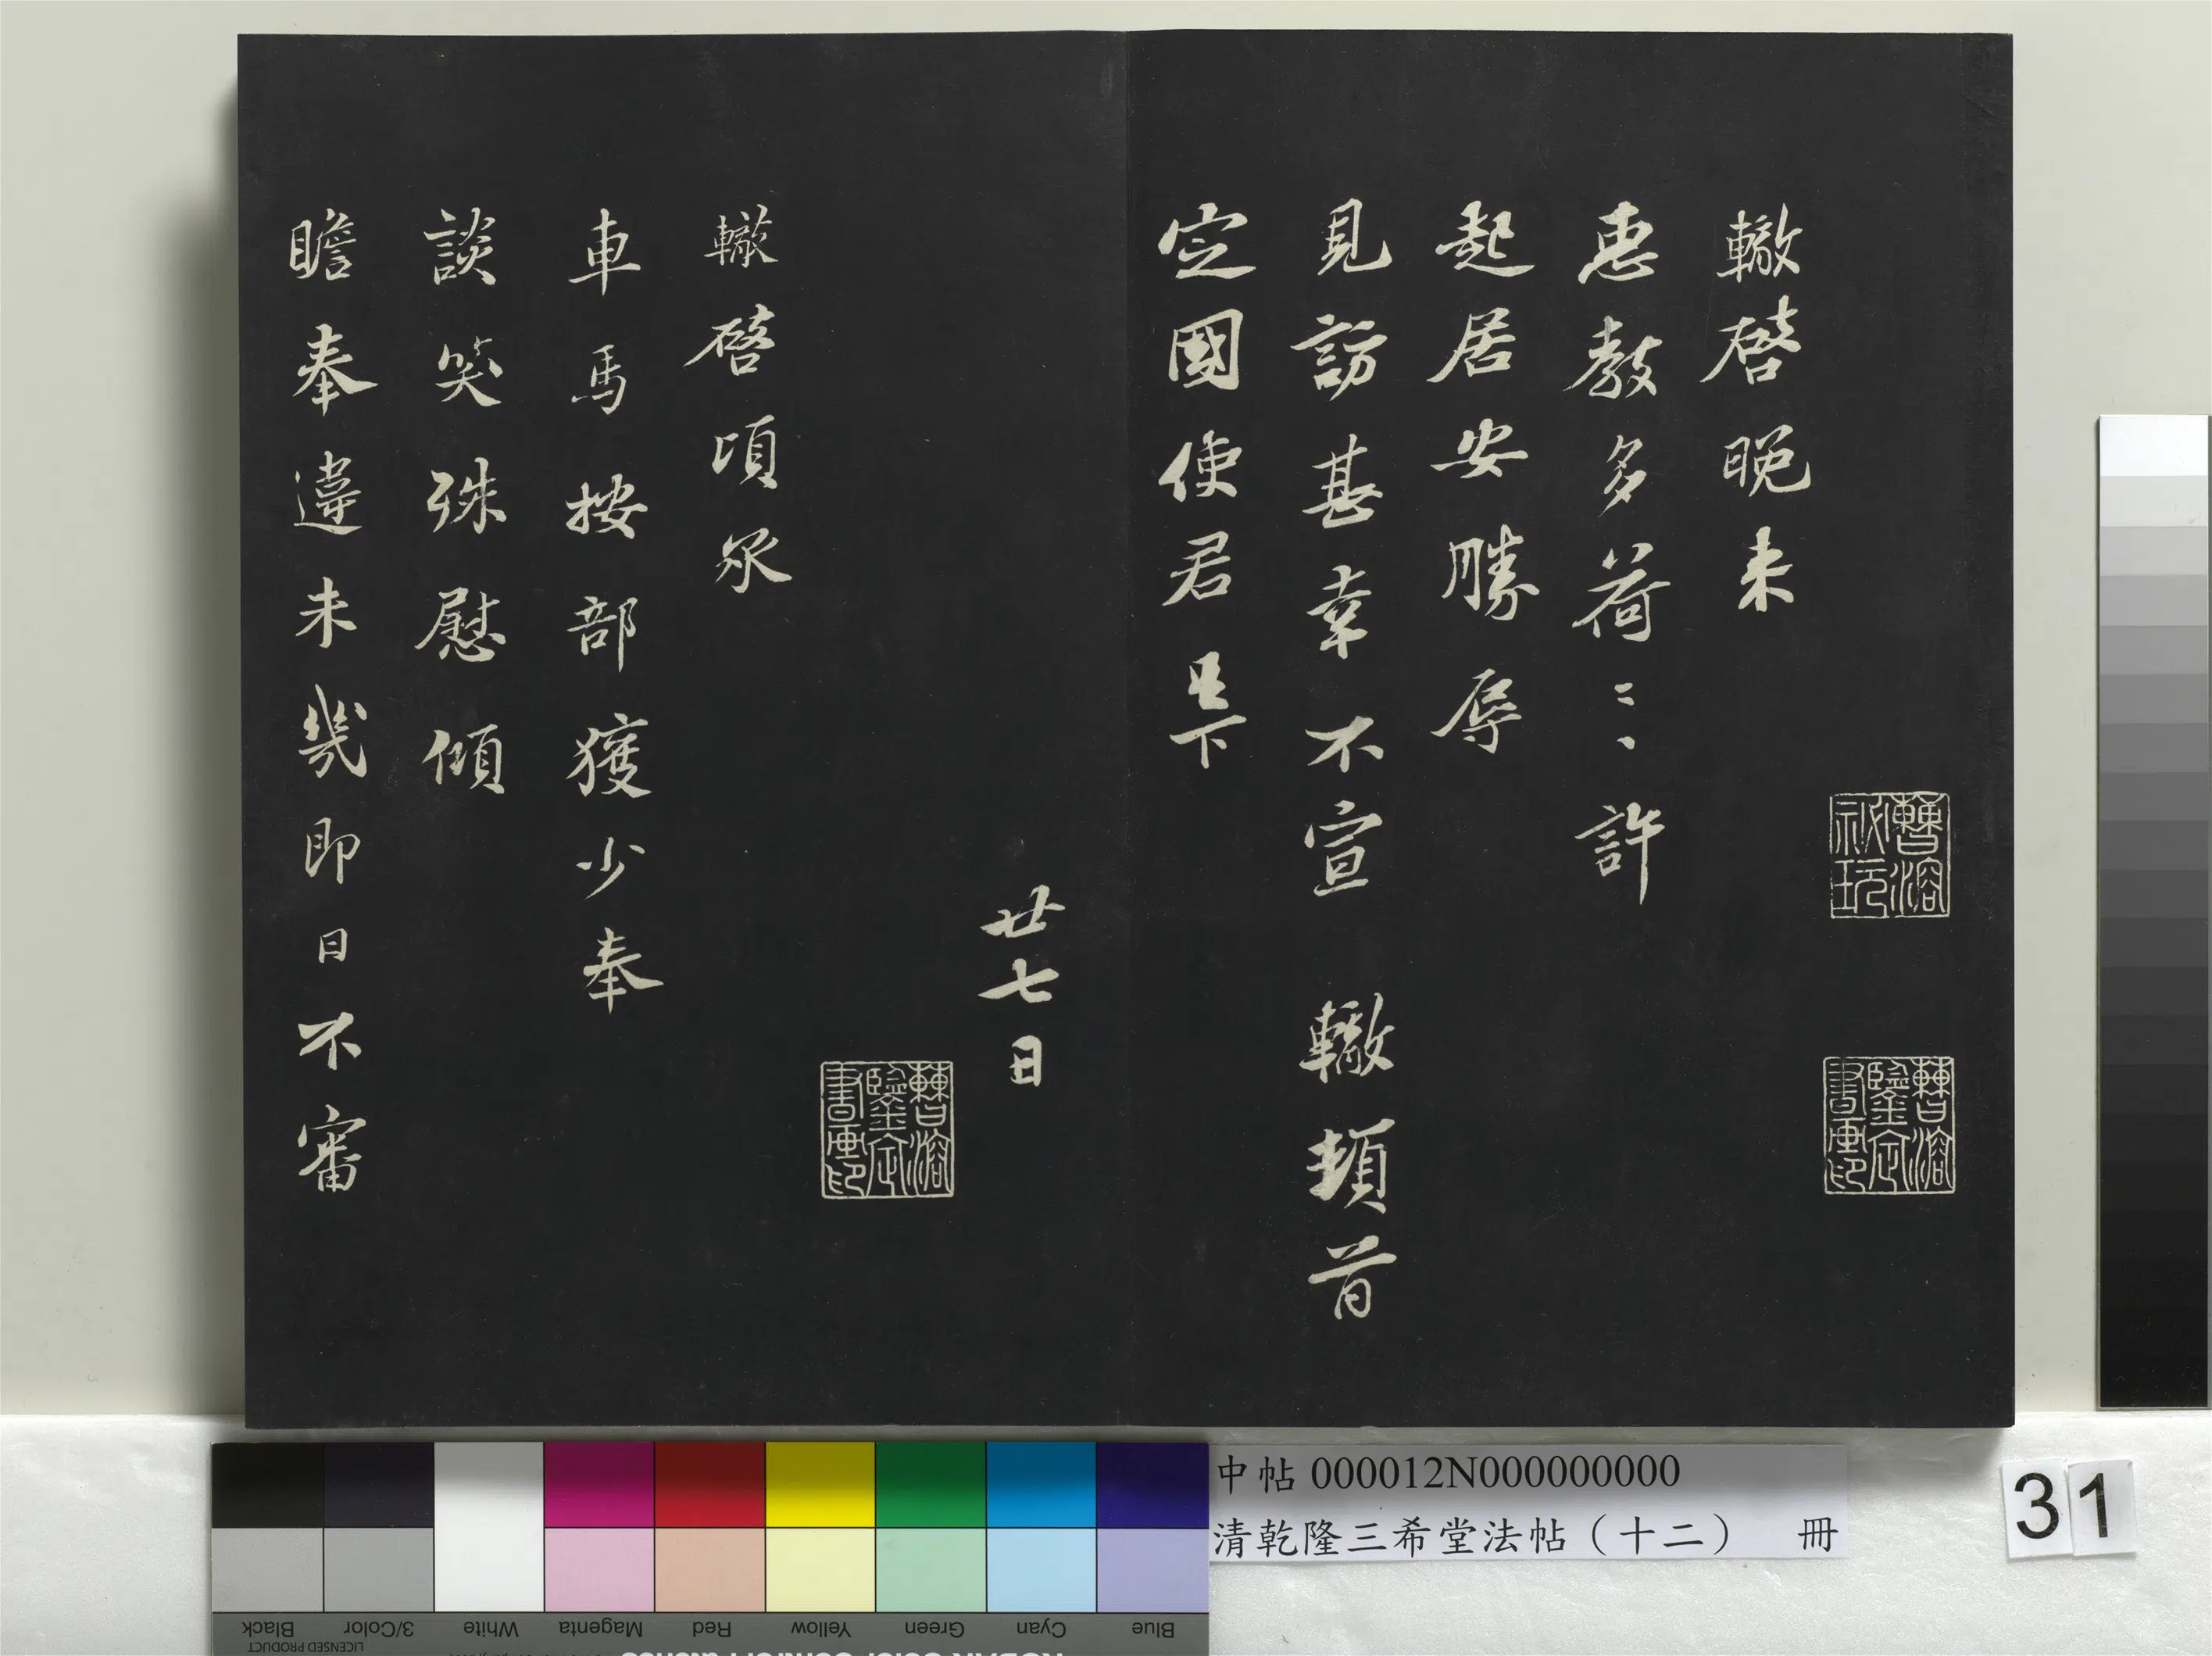 曹溶祕玩
曹溶鑒定書畫印
轍啓晚來
惠教多荷〻〻許
起居安勝辱
見訪甚幸不宣 轍頓首
定國使君足下
廿七日
曹溶鑒定書畫印
轍啓頃承
車馬按部獲少奉
談笑殊慰傾
瞻奉違未幾即日不審
中帖 000012N000000000
清乾隆三希堂法帖（十二） 冊
31
Blue Cyan Green Yellow Red Magenta White 3/Color Black
LICENSED PRODUCT